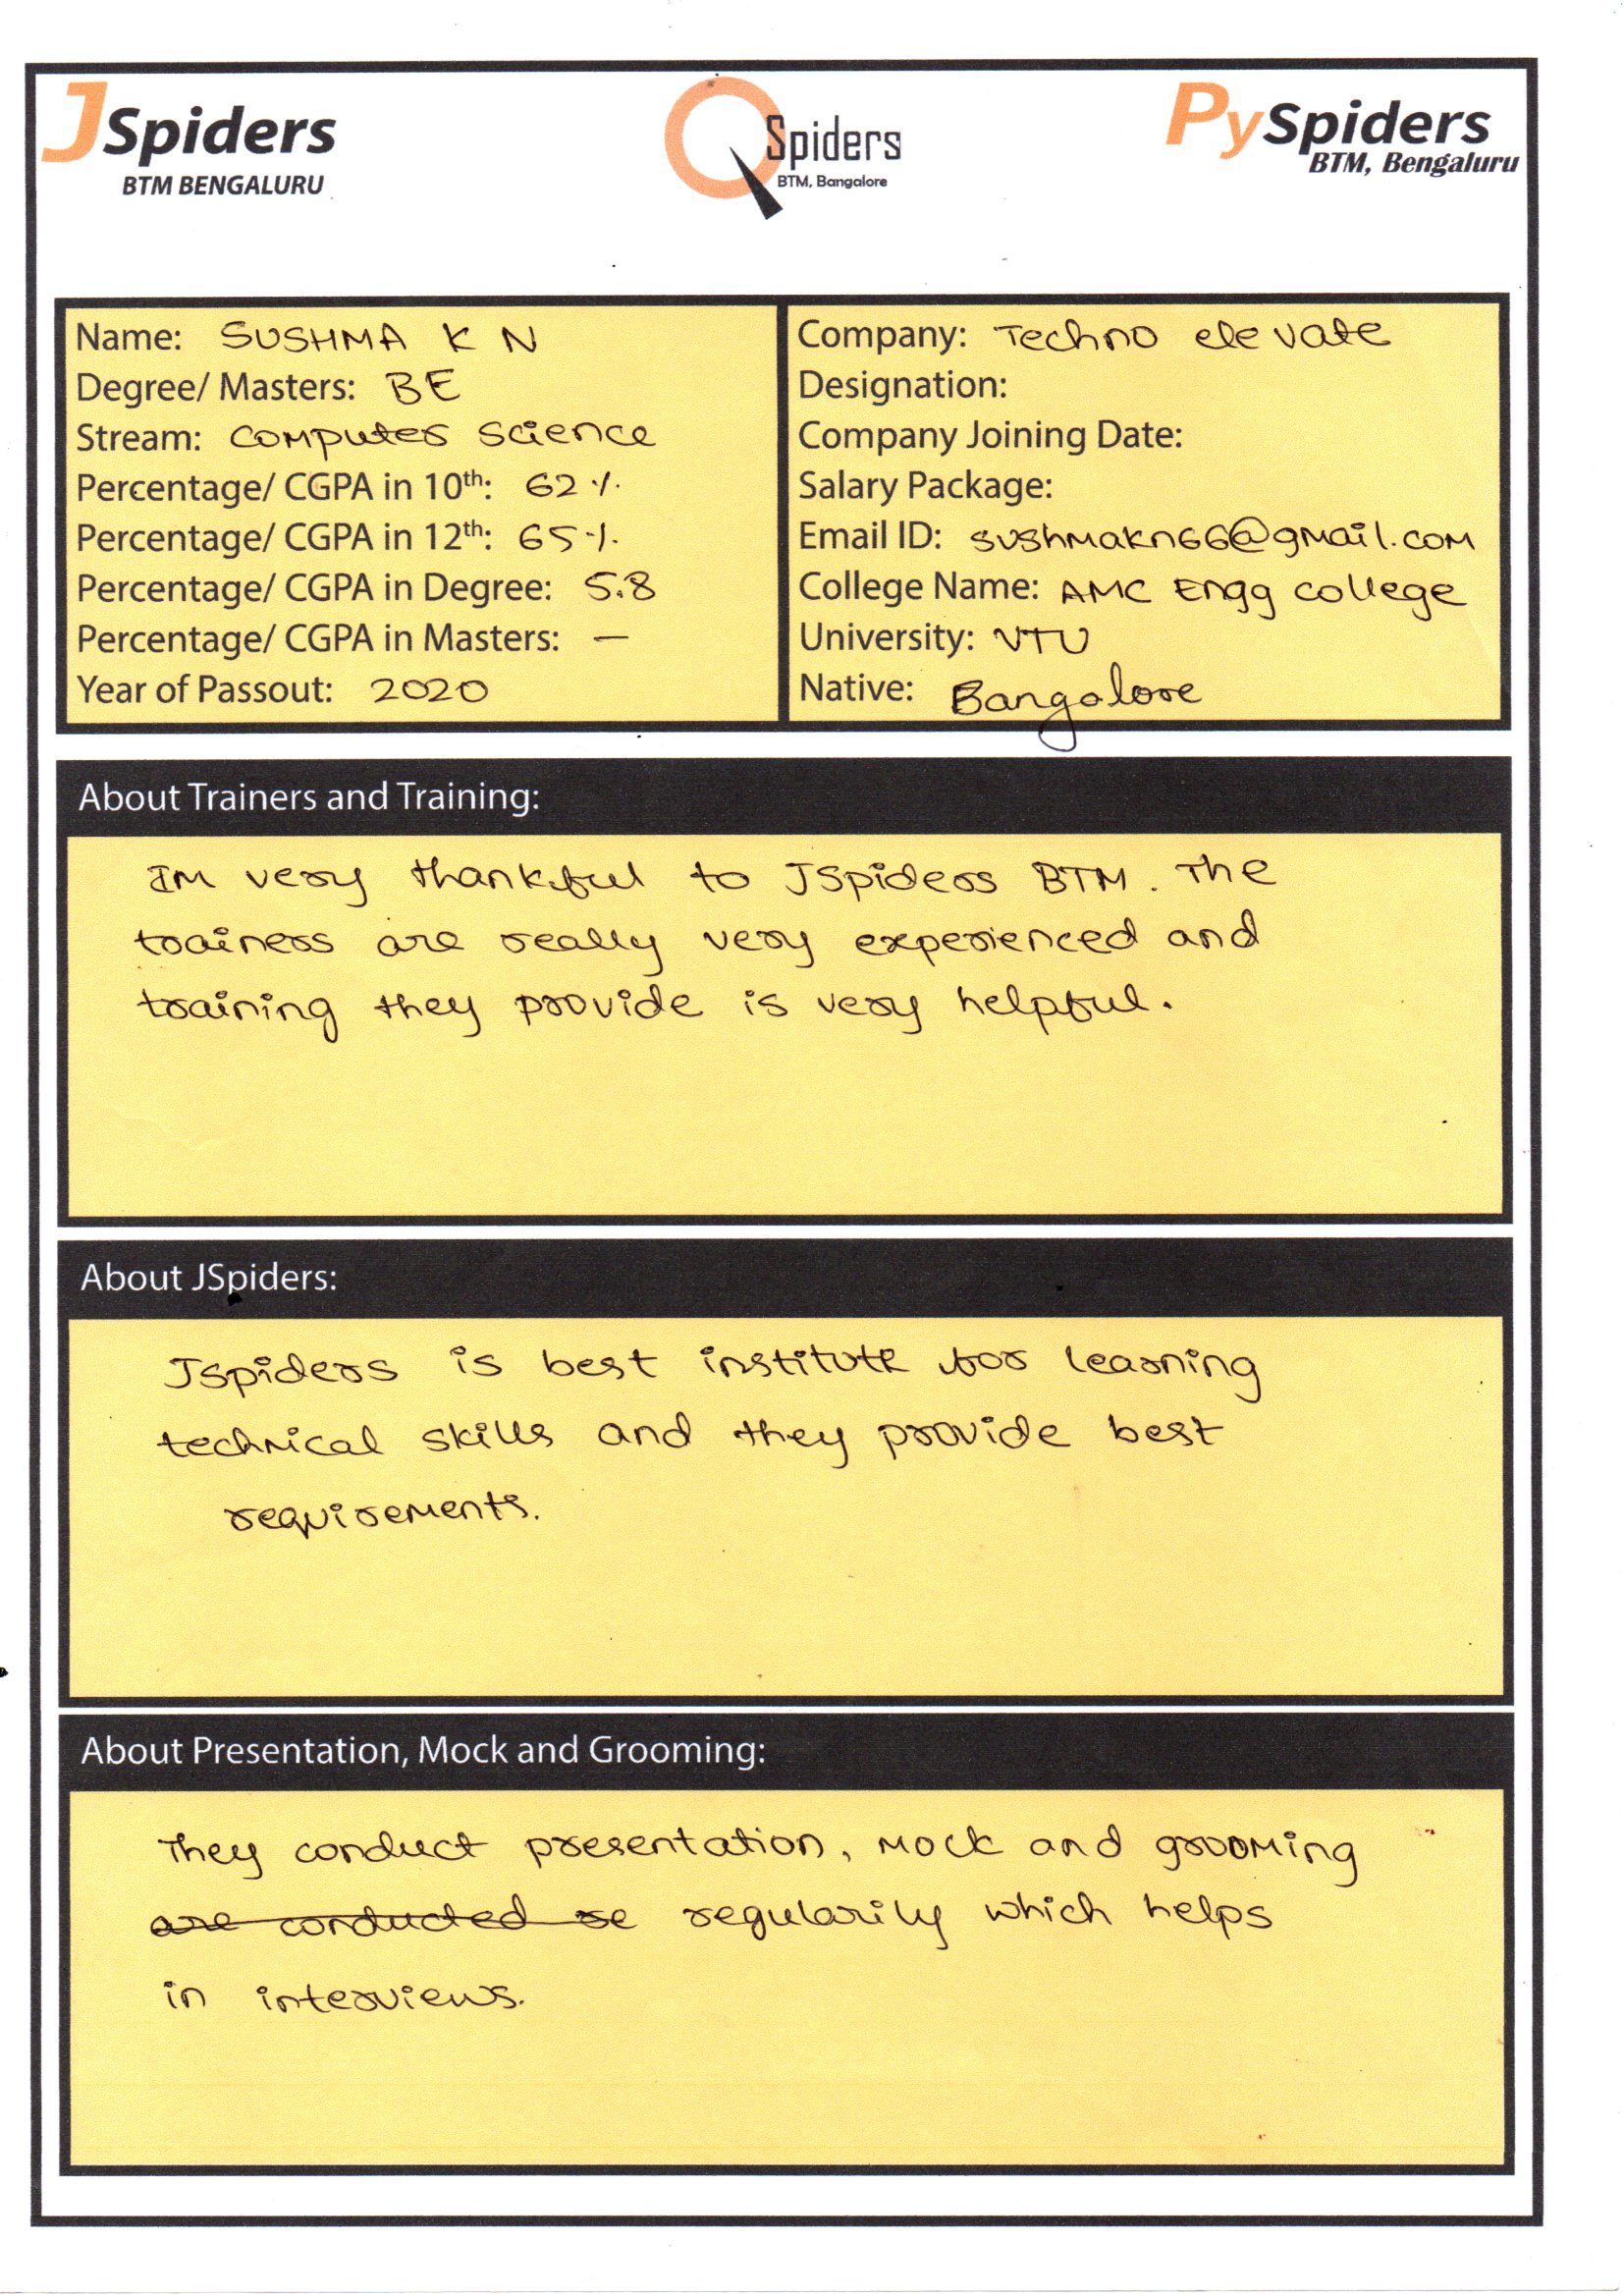 JSpiders
BTM BENGALURU
QSpiders
BTM, Bangalore
PySpiders
BTM, Bengaluru
Name: SUSHMA K N
Degree/ Masters: BE
Stream: Computer Science
Percentage/ CGPA in 10th: 62%
Percentage/ CGPA in 12th: 65%
Percentage/ CGPA in Degree: 5.8
Percentage/ CGPA in Masters: —
Year of Passout: 2020
Company: Techno elevate
Designation:
Company Joining Date:
Salary Package:
Email ID: sushmakn66@gmail.com
College Name: AMC Engg college
University: VTU
Native: Bangalore
About Trainers and Training:
Im very thankful to JSpiders BTM. The
trainers are really very experienced and
training they provide is very helpful.
About JSpiders:
Jspiders is best institute for learning
technical skills and they provide best
requirements.
About Presentation, Mock and Grooming:
They conduct presentation, mock and grooming
are conducted re regularily which helps
in interviews.